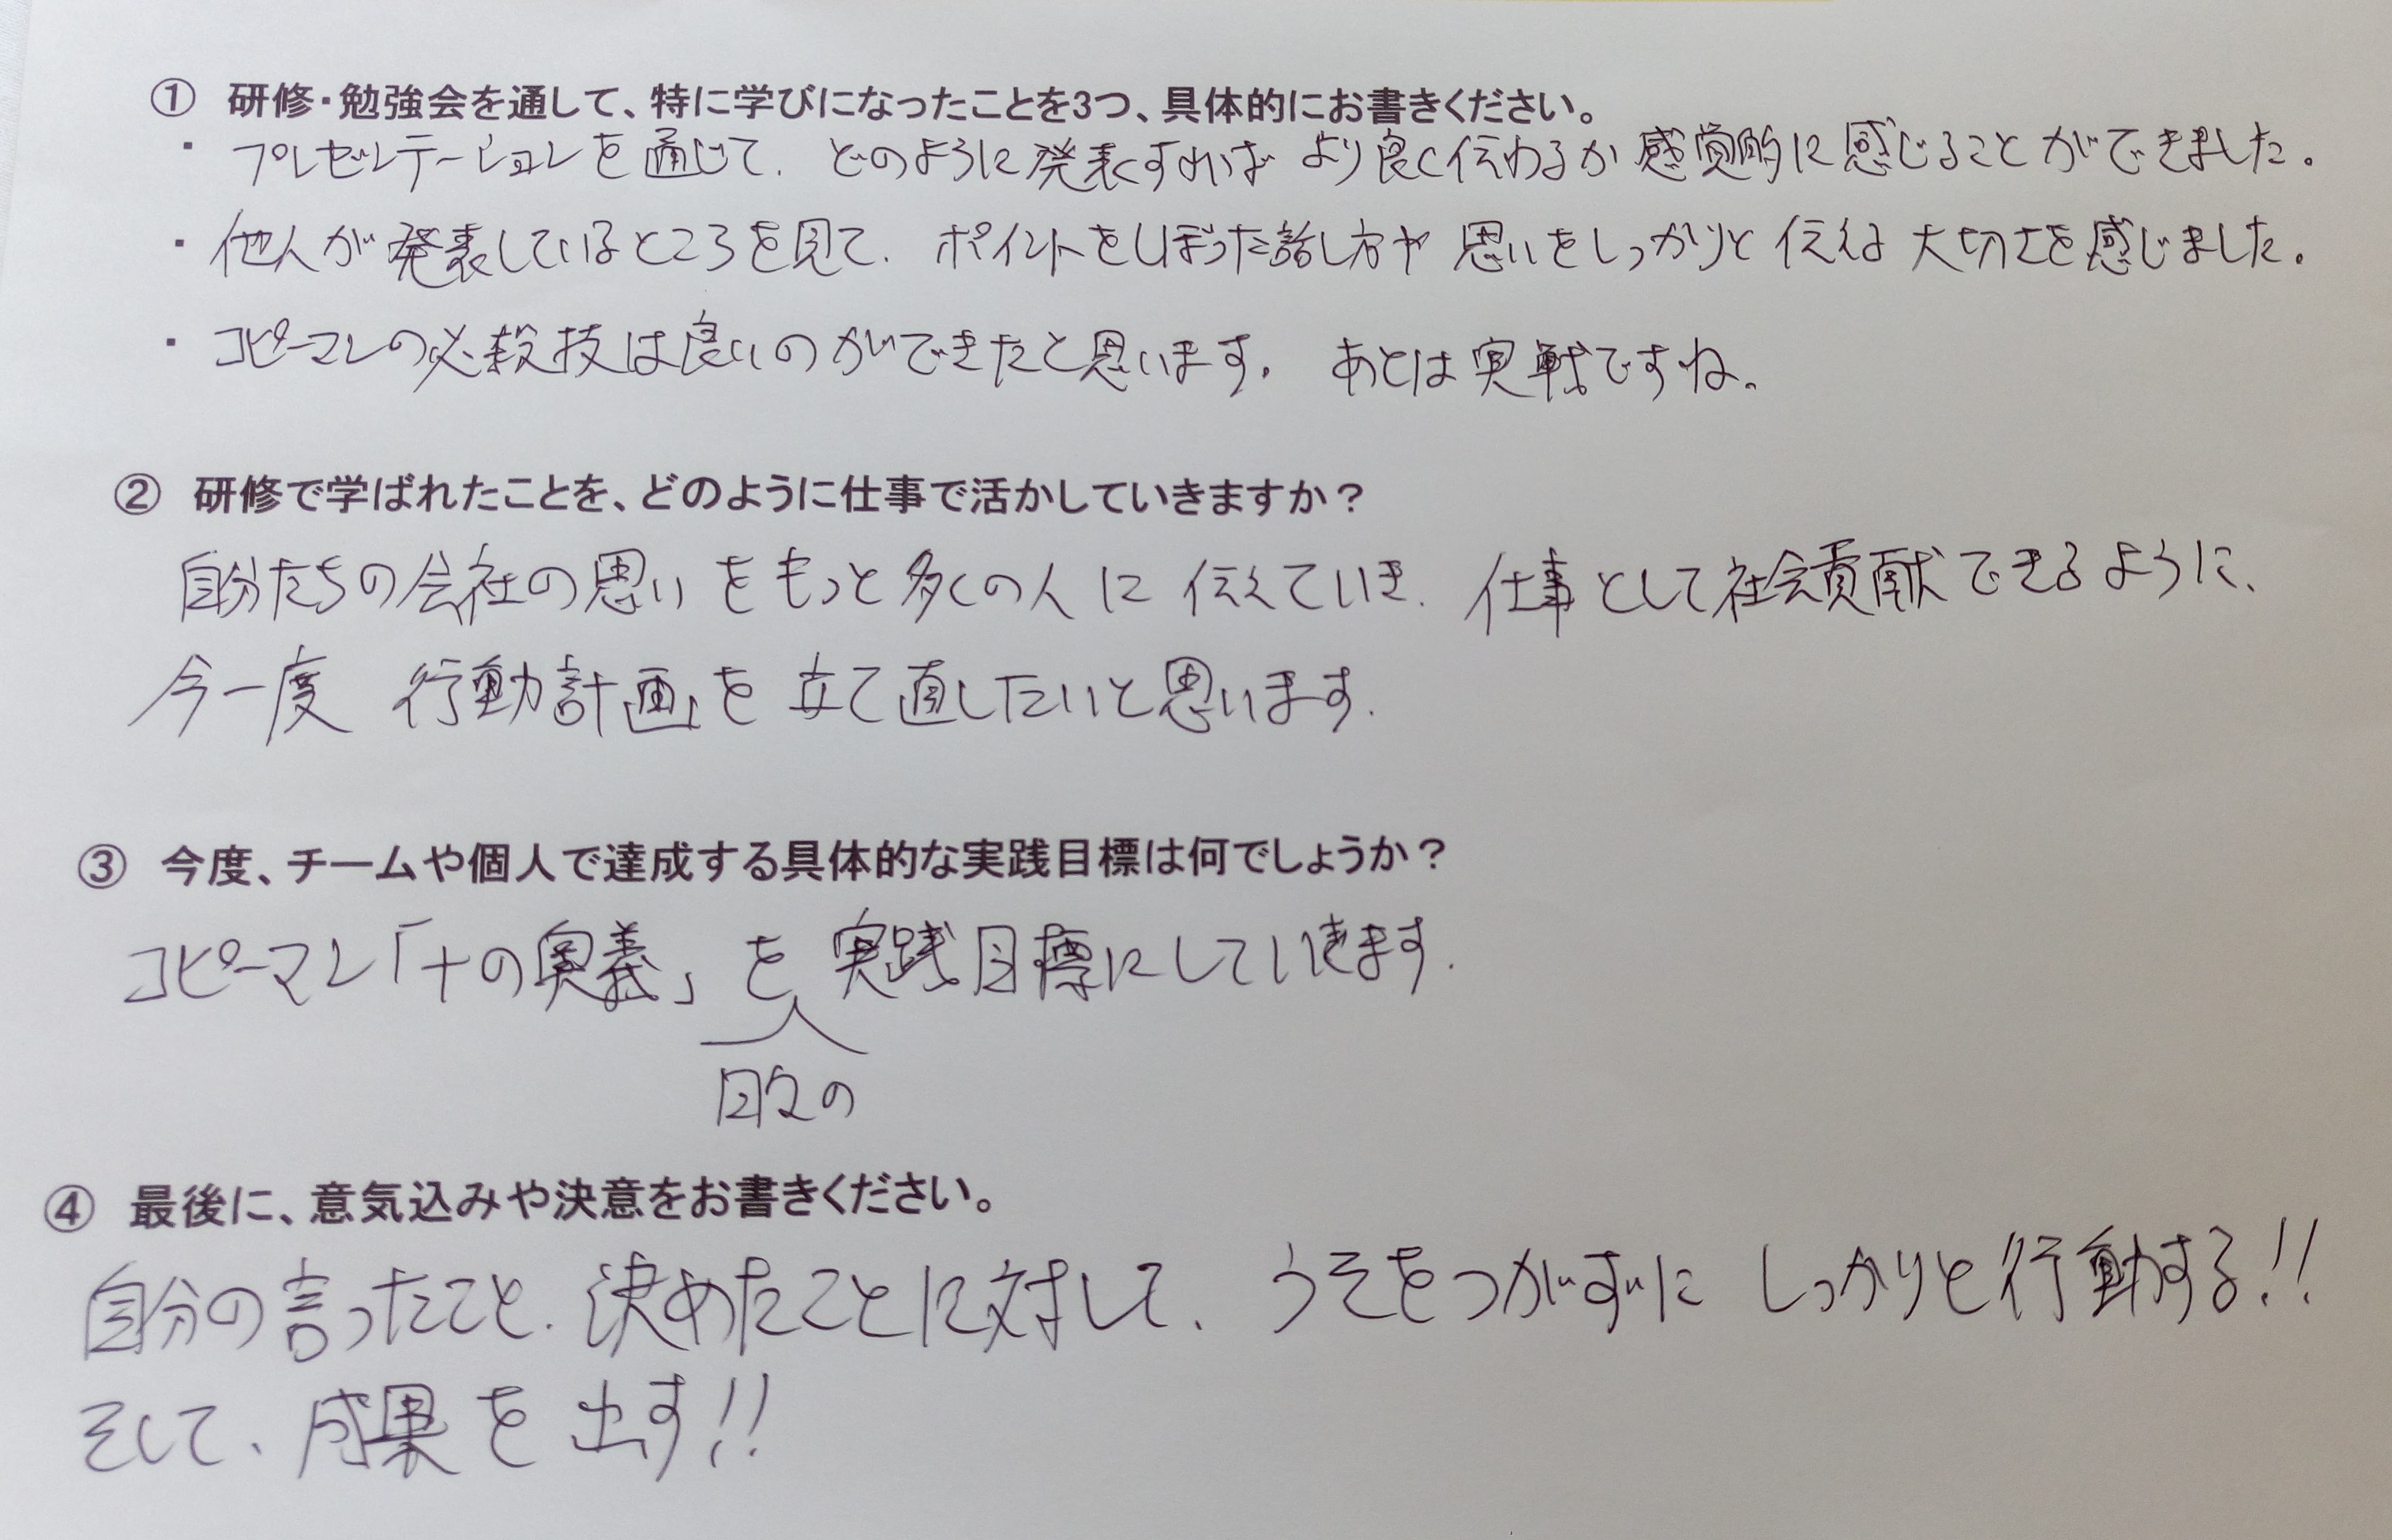 ① 研修・勉強会を通して、特に学びになったことを3つ、具体的にお書きください。
・プレゼンテーションを通じて、どのように発表すればより良く伝わるか感覚的に感じることができました。
・他人が発表しているところを見て、ポイントをしぼった話し方や思いをしっかりと伝える大切さを感じました。
・コピーマンの必殺技は良いのができたと思います。あとは実戦ですね。
② 研修で学ばれたことを、どのように仕事で活かしていきますか？
自分たちの会社の思いをもっと多くの人に伝えていき、仕事として社会貢献できるように、
今一度 行動計画を立て直したいと思います。
③ 今度、チームや個人で達成する具体的な実践目標は何でしょうか？
コピーマン「十の奥義」を実践目標にしていきます。
日々の
④ 最後に、意気込みや決意をお書きください。
自分の言ったこと、決めたことに対して、うそをつかずにしっかりと行動する!!
そして、成果を出す!!